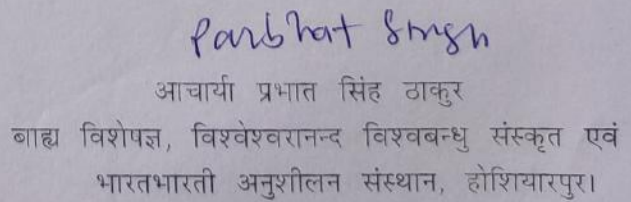 Parbhat Singh
आचार्या प्रभात सिंह ठाकुर
बाह्य विशेषज्ञ, विश्वेश्वरानन्द विश्वबन्धु संस्कृत एवं
भारतभारती अनुशीलन संस्थान, होशियारपुर।